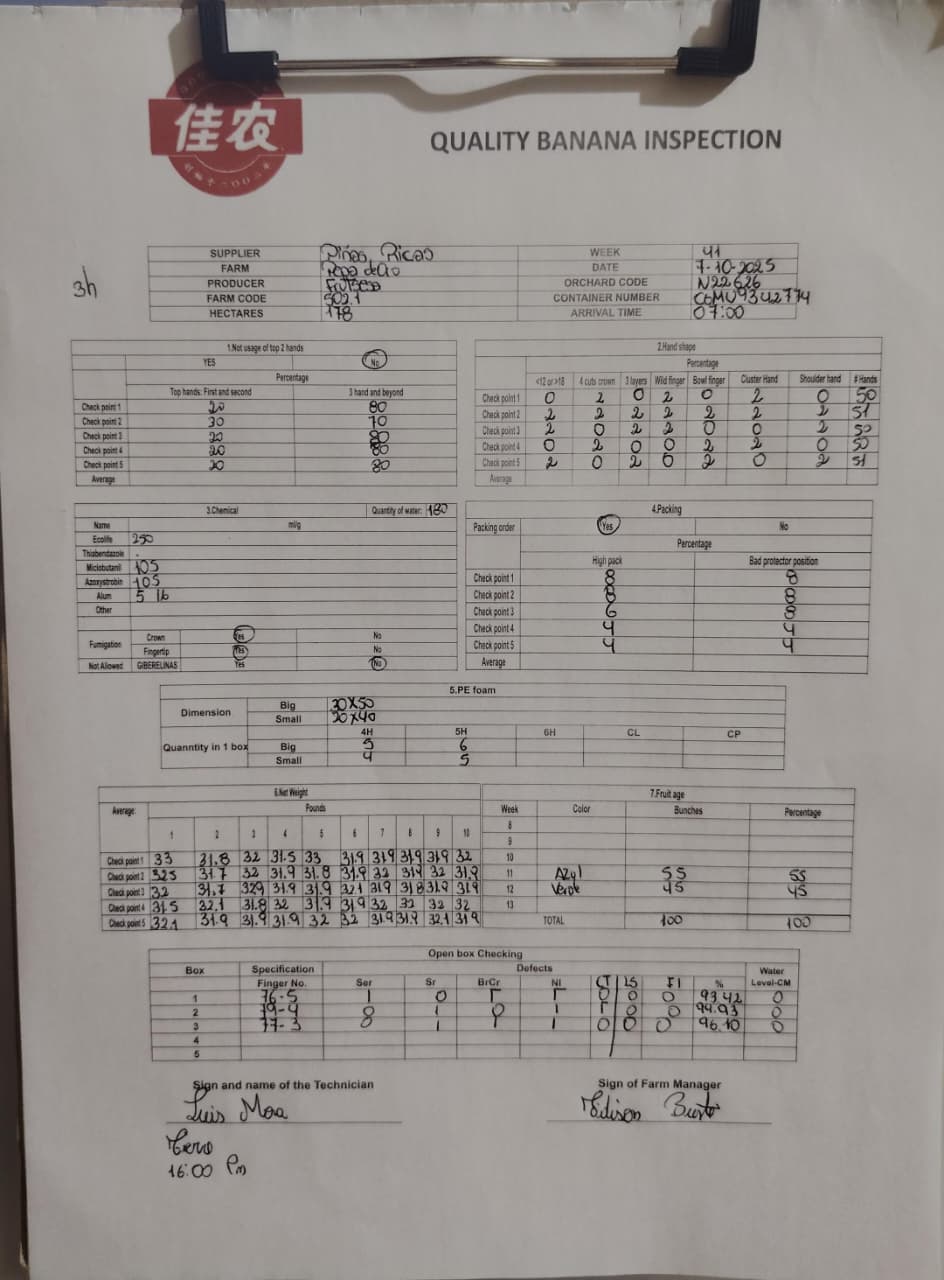 佳农
QUALITY BANANA INSPECTION
3h
SUPPLIER Piñas Ricas WEEK 41
FARM DATE 7-10-2025
PRODUCER ORCHARD CODE N22626
FARM CODE 502.1 CONTAINER NUMBER
HECTARES 178 ARRIVAL TIME 07:00
1.Not usage of top 2 hands
YES No
Percentage
Top hands: First and second 3 hand and beyond
Check point 1 20 80
Check point 2 30 70
Check point 3 20 80
Check point 4 20 80
Check point 5 20 80
Average
2.Hand shape
Percentage
<12 or >18 4 cuts crown 3 layers Wild finger Bowl finger Cluster Hand Shoulder hand # Hands
Check point 1 0 2 0 2 0 2 0 50
Check point 2 2 2 2 2 2 2 2 51
Check point 3 2 0 2 2 0 0 2 50
Check point 4 0 2 0 0 2 2 0 50
Check point 5 2 0 2 0 2 0 2 51
Average
3.Chemical Quantity of water: 180
Name ml/g
Ecolife 250
Thiabendazole .
Miclobutanil 105
Azoxystrobin 105
Alum 5 lb
Other
Fumigation Crown Yes No
Fingertip Yes No
Not Allowed GIBERELINAS Yes No
4.Packing
Packing order Yes No
Percentage
High pack Bad protector position
Check point 1 8 8
Check point 2 8 8
Check point 3 6 8
Check point 4 4 4
Check point 5 4 4
Average
5.PE foam
Dimension Big 30X50
Small 20X40
4H 5H 6H CL CP
Quanntity in 1 box Big 5 6
Small 4 5
6.Net Weight
Average: Pounds
1 2 3 4 5 6 7 8 9 10
Check point 1 33 31.8 32 31.5 33 31.9 31.9 31.9 31.9 32
Check point 2 32.5 31.7 32 31.9 31.8 31.9 32 31.9 32 31.9
Check point 3 32 31.7 32.9 31.9 31.9 32.1 31.9 31.8 31.9 31.9
Check point 4 31.5 32.1 31.8 32 31.9 31.9 32 32 32 32
Check point 5 32.1 31.9 31.9 31.9 32 32 31.9 31.9 32.1 31.9
7.Fruit age
Week Color Bunches Percentage
8
9
10
11 Azul 55 55
12 Verde 45 45
13
TOTAL 100 100
Open box Checking
Box Specification Defects Water
Finger No. Ser Sr BrCr NI CT LS FI % Level-CM
1 76-5 1 0 0 0 0 93.42 0
2 79-4 1 1 0 0 94.93 0
3 77-3 1 1 0 0 0 96.10 0
4
5
Sign and name of the Technician Sign of Farm Manager
Luis Mora
16:00 Pm